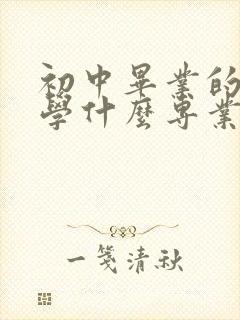 初中畢業的
學什麼專業
一箋清秋